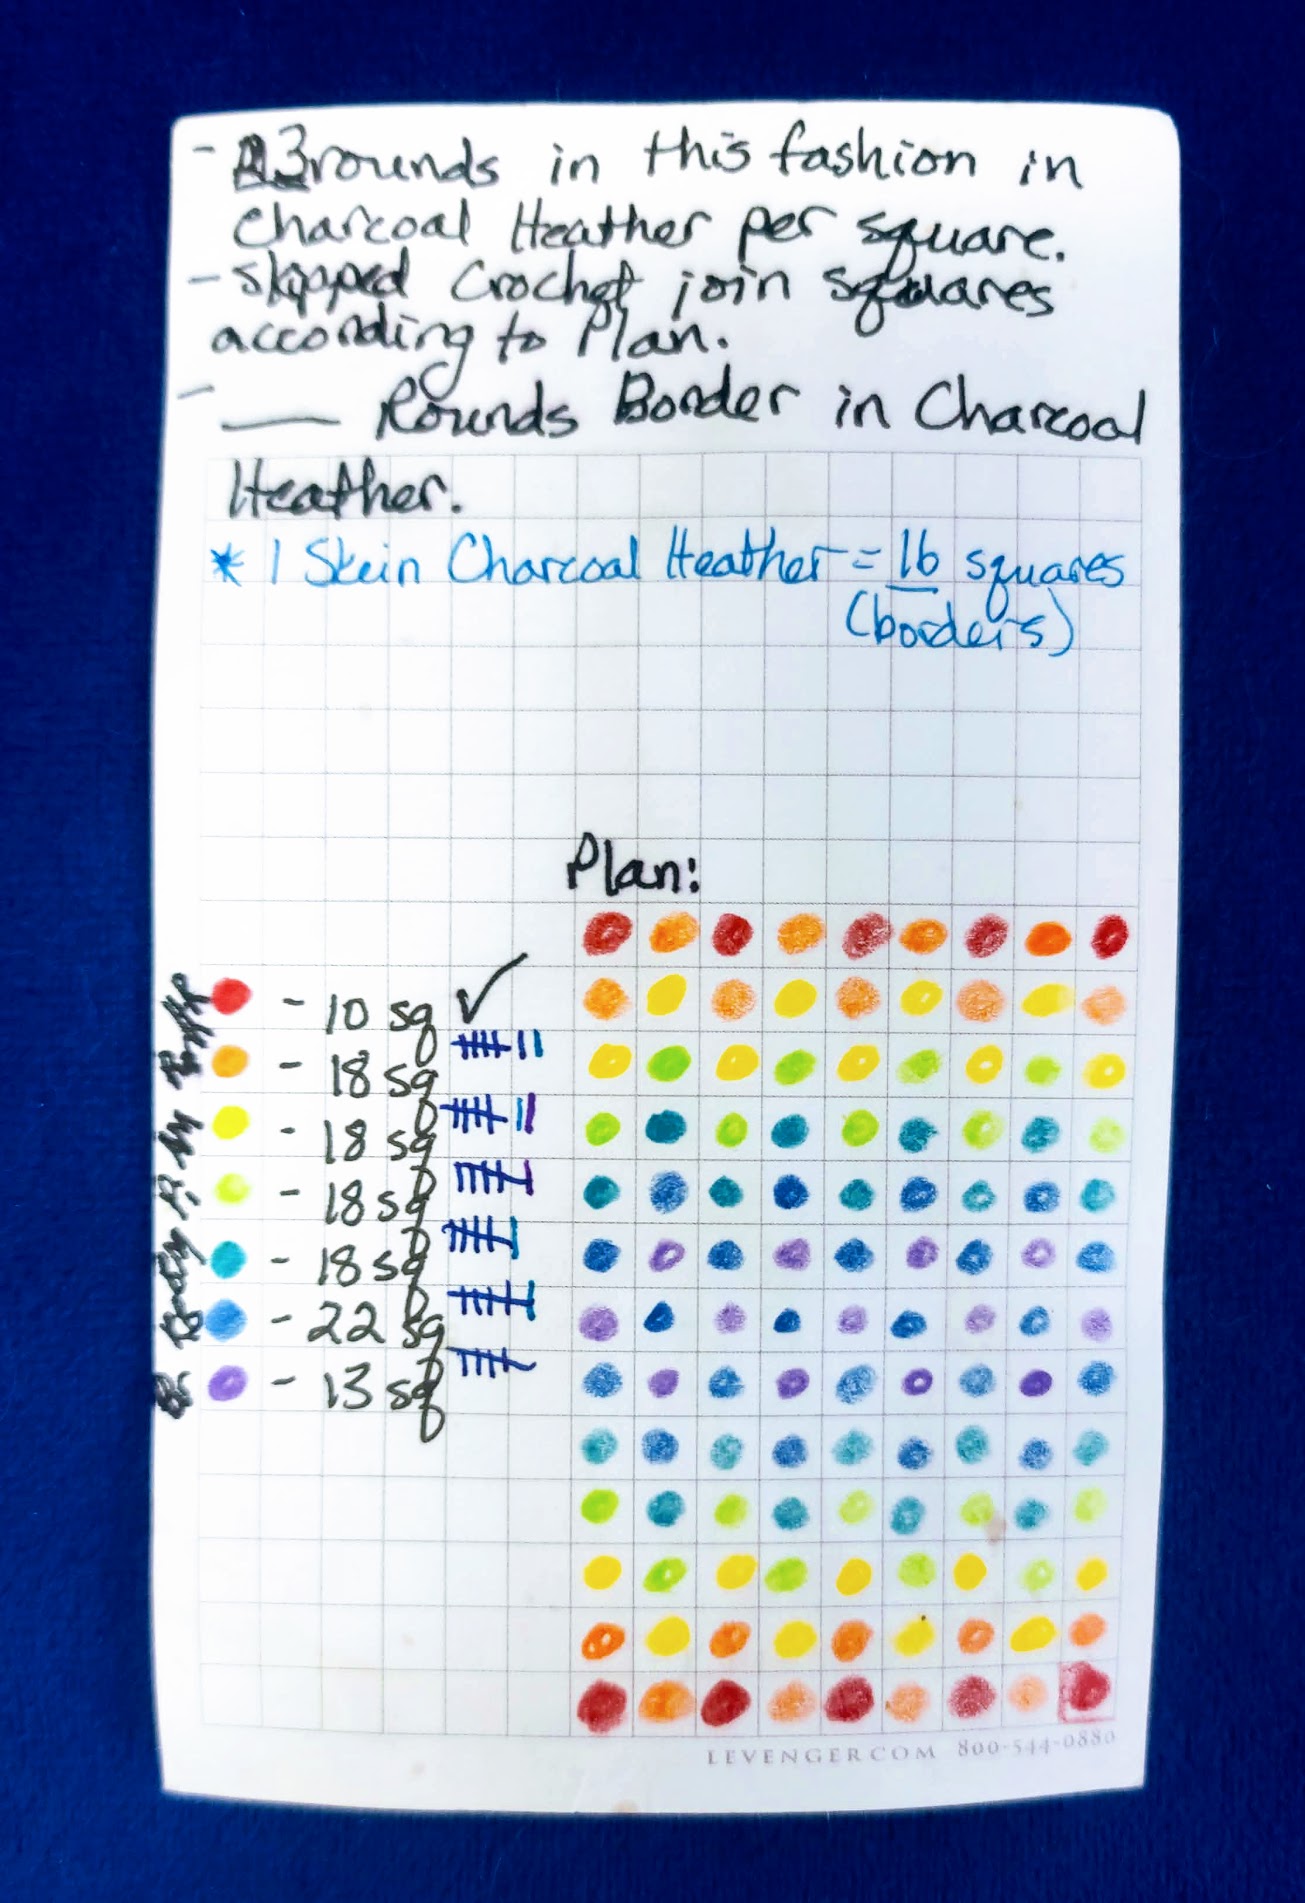 - 3 rounds in this fashion in
Charcoal Heather per square.
- Skipped Crochet join squares
according to Plan.
- ___ Rounds Border in Charcoal
Heather.
* 1 Skein Charcoal Heather = 16 squares
(borders)
Plan:
- 10 sq ✓
- 18 sq
- 18 sq
- 18 sq
- 18 sq
- 22 sq
- 13 sq
LEVENGER.COM 800-544-0880